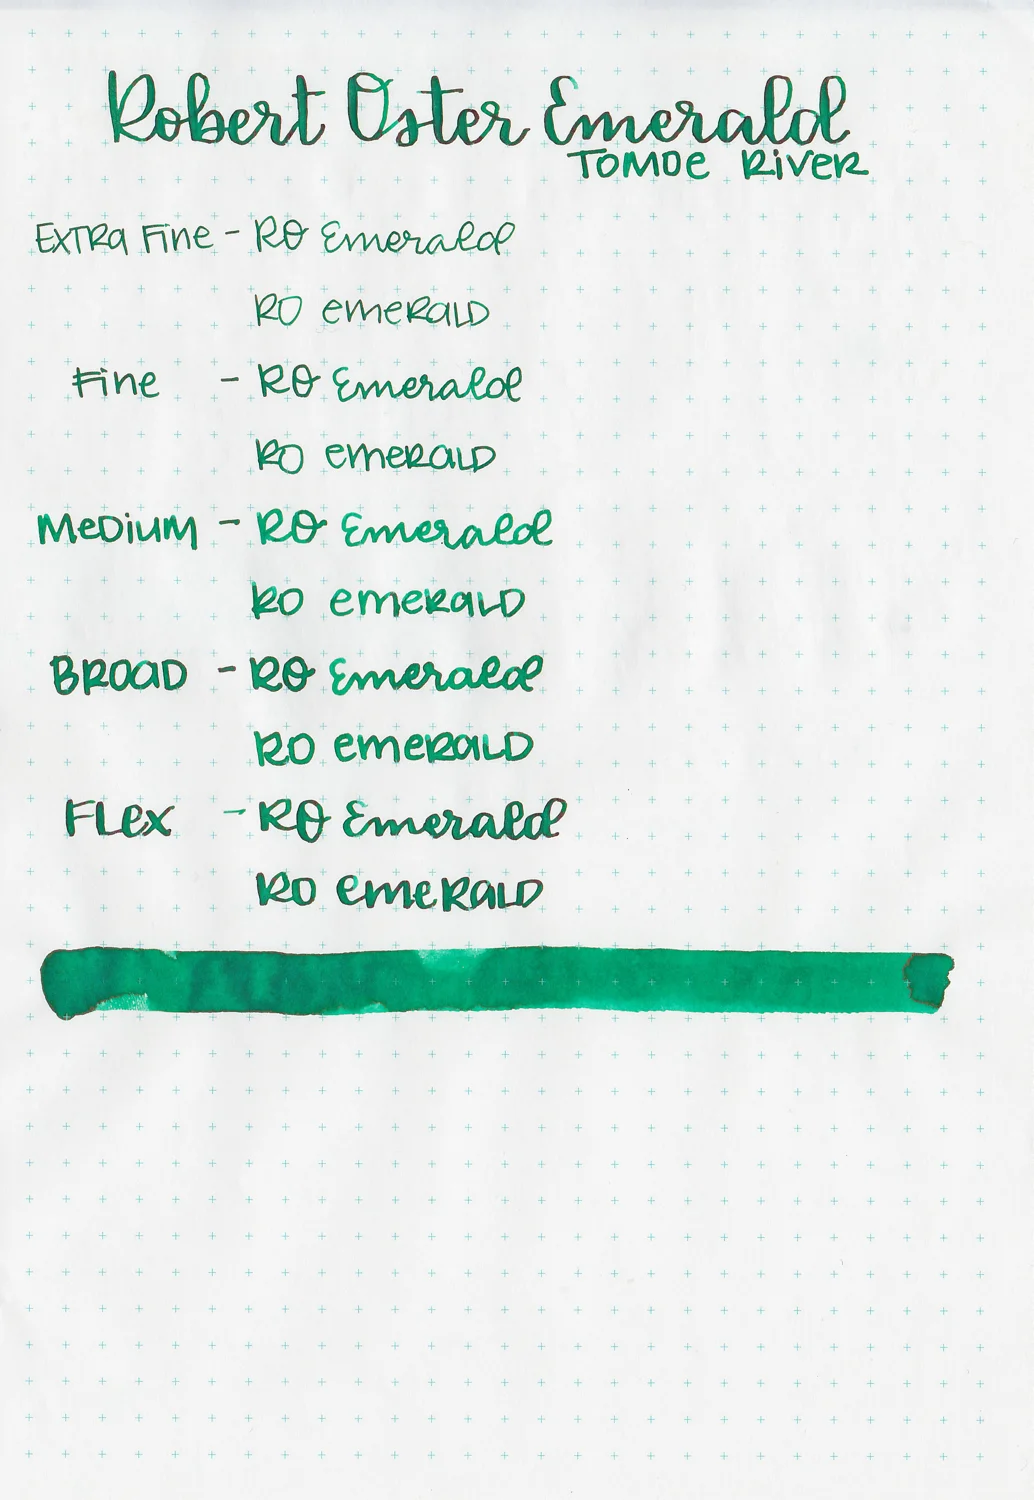 Robert Oster Emerald
TOMOE RiVER
EXTRA Fine - RO Emerald
RO emeRALD
Fine - RO Emerald
RO emeRALD
MeDiUM - RO Emerald
RO emeRALD
BROAD - RO Emerald
RO emeRALD
FLex - RO Emerald
RO emeRALD